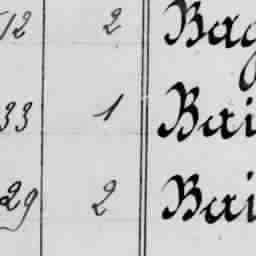 12 2 Bag
33 1 Bai
29 2 Bai